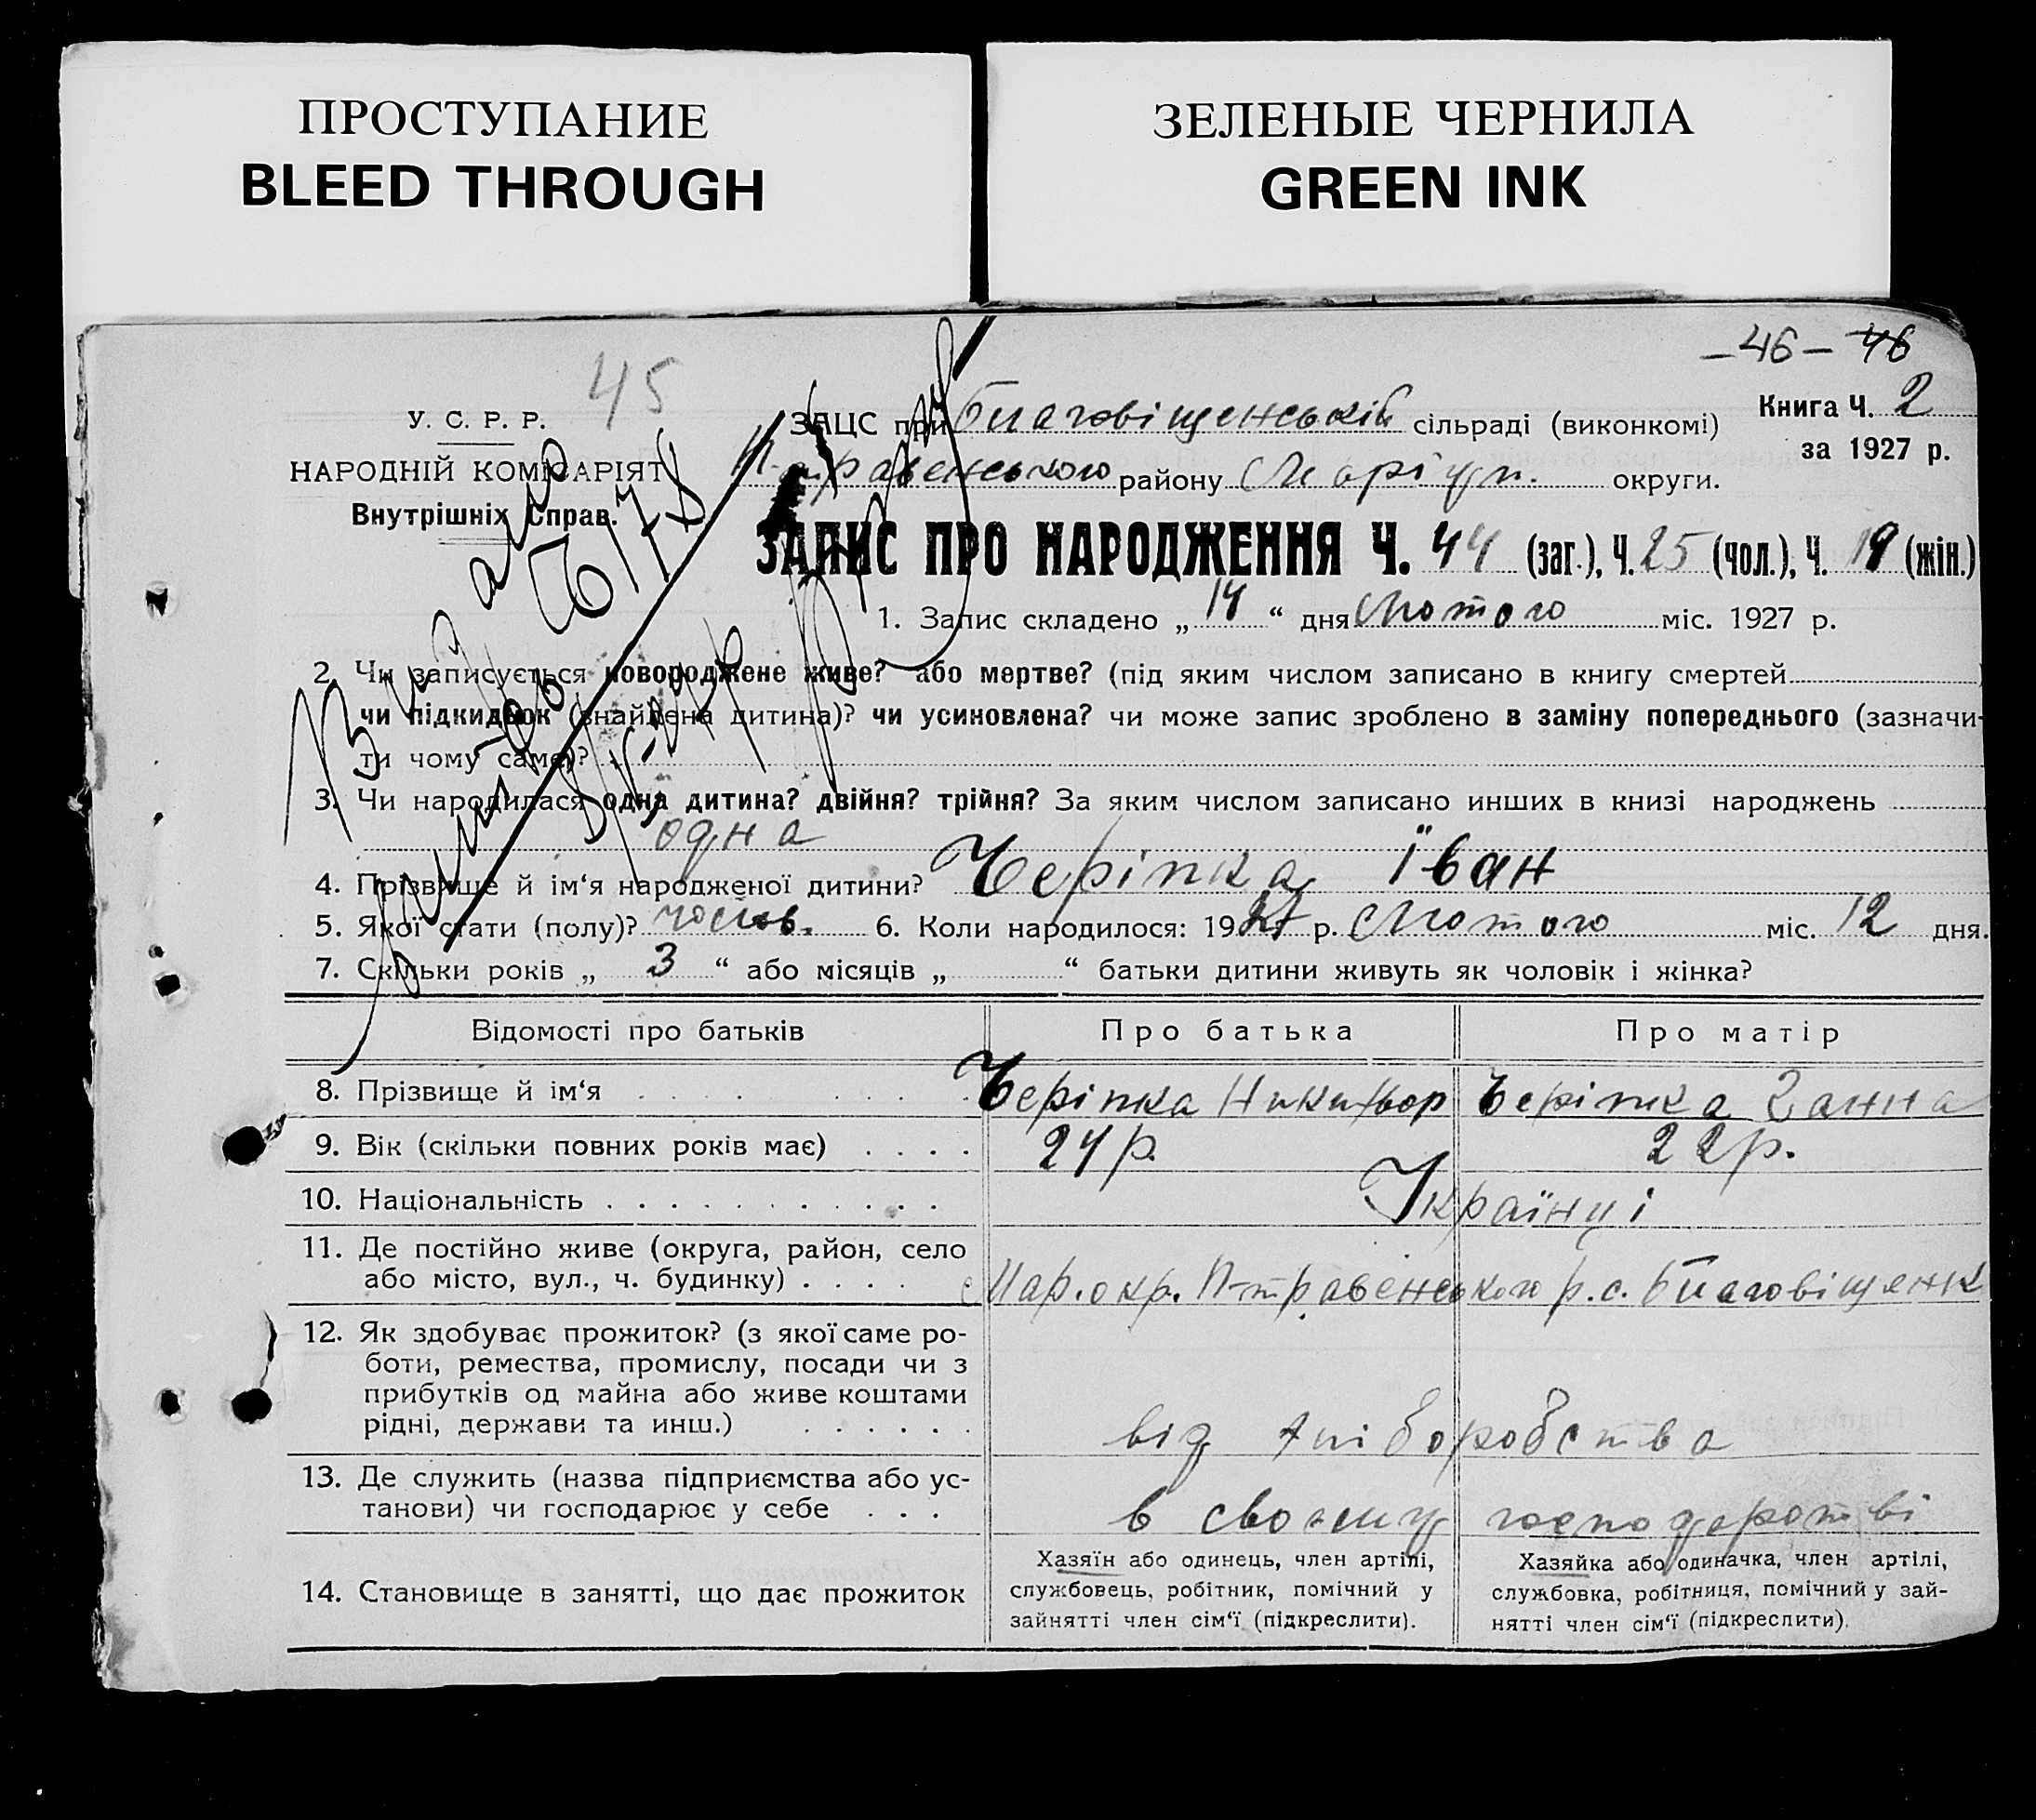 ПРОСТУПАНИЕ
BLEED THROUGH
ЗЕЛЕНЫЕ ЧЕРНИЛА
GREEN INK
-46- 46
45
У. С. Р. Р.
НАРОДНІЙ КОМІСАРІЯТ
Внутрішніх Справ.
ЗАЦС при Благовіщенській сільраді (виконкомі)
Книга Ч. 2
за 1927 р.
району Маріуп. округи.
ЗАПИС ПРО НАРОДЖЕННЯ Ч. 44 (заг.), Ч. 25 (чол.), Ч. 19 (жін.)
1. Запис складено „ 14 “ дня Лютого міс. 1927 р.
2. Чи записується новороджене живе? або мертве? (під яким числом записано в книгу смертей
чи підкидьок (знайдена дитина)? чи усиновлена? чи може запис зроблено в заміну попереднього (зазначи-
ти чому саме)?
3. Чи народилася одна дитина? двійня? трійня? За яким числом записано инших в книзі народжень
одна
4. Прізвище й ім‘я народженої дитини? Черіпка Іван
5. Якої стати (полу)? чолов. 6. Коли народилося: 1927 р. Лютого міс. 12 дня.
7. Скільки років „ 3 “ або місяців „ “ батьки дитини живуть як чоловік і жінка?
Відомості про батьків Про батька Про матір
8. Прізвище й ім‘я Черіпка Никифор Черіпка Ганна
9. Вік (скільки повних років має) 24 р. 22 р.
10. Національність Українці
11. Де постійно живе (округа, район, село
або місто, вул., ч. будинку) Мар. окр. П-травенського р. с. Благовіщенк
12. Як здобуває прожиток? (з якої саме ро-
боти, ремества, промислу, посади чи з
прибутків од майна або живе коштами
рідні, держави та инш.) від хліборобства
13. Де служить (назва підприємства або ус-
танови) чи господарює у себе в своєму господарстві
14. Становище в занятті, що дає прожиток
Хазяїн або одинець, член артілі,
службовець, робітник, помічний у
зайнятті член сім‘ї (підкреслити).
Хазяйка або одиначка, член артілі,
службовка, робітниця, помічний у зай-
нятті член сім‘ї (підкреслити).